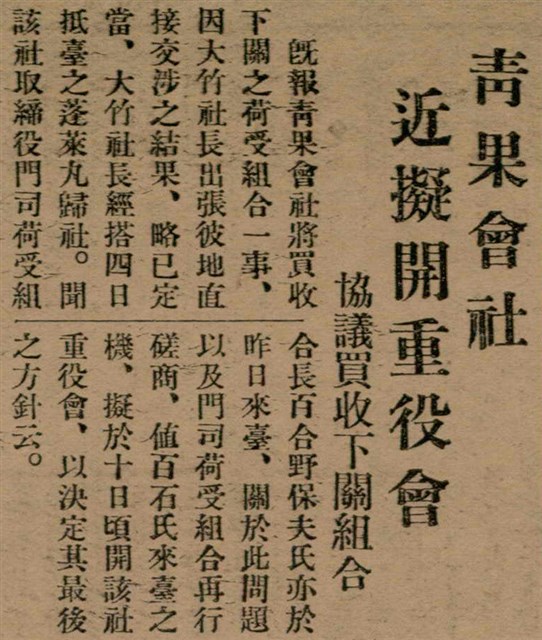 青果會社
近擬開重役會
協議買收下關組合
旣報青果會社將買收
下關之荷受組合一事、
因大竹社長出張彼地直
接交涉之結果、略已定
當、大竹社長經搭四日
抵臺之蓬萊丸歸社。聞
該社取締役門司荷受組
合長百合野保夫氏亦於
昨日來臺、關於此問題
以及門司荷受組合再行
磋商、値百石氏來臺之
機、擬於十日頃開該社
重役會、以決定其最後
之方針云。